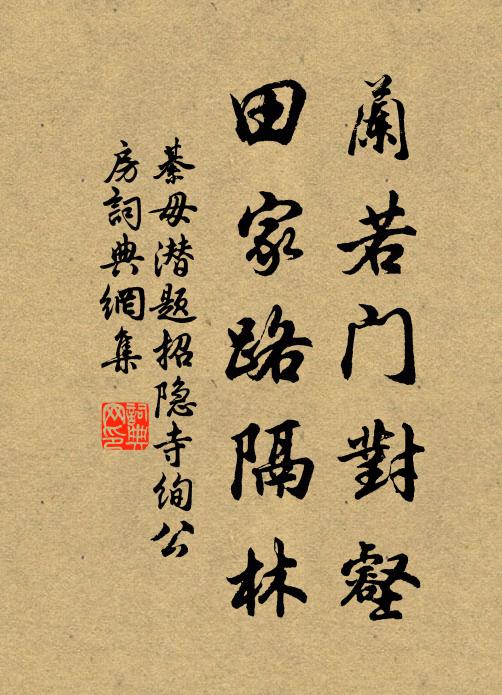 蘭若門對壑
田家路隔林
綦毋潛题招隐寺絢公
房詞典網集
詞典
网印